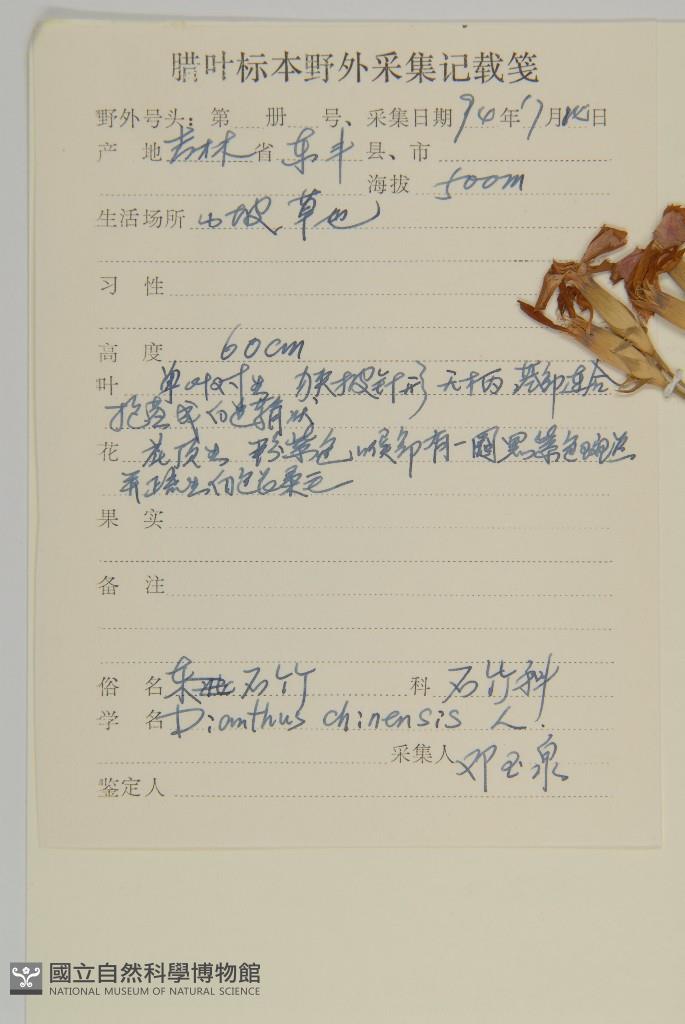 腊叶标本野外采集记载笺
野外号头：第 册 号、采集日期 94年7月 日
产 地 吉林 省 东丰 县、市
海拔 500m
生活场所 山坡 草地
习 性
高 度 60cm
叶 单叶对生 披针形 无柄 基部连合
抱茎成
花 花顶生 粉紫色 喉部有一圈黑紫色斑
果 实
备 注
俗 名 石竹 科 石竹科
学 名 Dianthus chinensis
采集人 邓玉泉
鉴定人
國立自然科學博物館
NATIONAL MUSEUM OF NATURAL SCIENCE